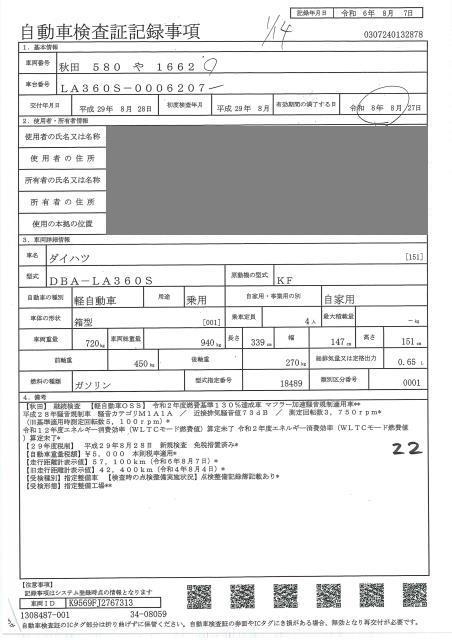 記録年月日 令和 6年 8月 7日
自動車検査証記録事項
1/14
0307240132878
1. 基本情報
車両番号 秋田 580 や 1662
車台番号 LA360S-0006207
交付年月日 平成 29年 8月 28日 初度検査年月 平成 29年 8月 有効期間の満了する日 令和 8年 8月 27日
2. 使用者・所有者情報
使用者の氏名又は名称
使用者の住所
所有者の氏名又は名称
所有者の住所
使用の本拠の位置
3. 車両詳細情報
車名 ダイハツ [151]
型式 DBA-LA360S 原動機の型式 KF
自動車の種別 軽自動車 用途 乗用 自家用・事業用の別 自家用
車体の形状 箱型 [001] 乗車定員 4人 最大積載量 -kg
車両重量 720kg 車両総重量 940kg 長さ 339cm 幅 147cm 高さ 151cm
前軸重 450kg 後軸重 270kg 総排気量又は定格出力 0.65 L
燃料の種類 ガソリン 型式指定番号 18489 類別区分番号 0001
4. 備考
【秋田】 継続検査 【軽自動車OSS】 令和2年度燃費基準130%達成車 マフラー加速騒音規制適用車**
平成28年騒音規制車 騒音カテゴリM1A1A / 近接排気騒音値73dB / 測定回転数3,750rpm*
(旧基準適用時測定回転数5,100rpm)*
令和12年度エネルギー消費効率(WLTCモード燃費値)算定未了 令和2年度エネルギー消費効率(WLTCモード燃費値
)算定未了*
【29年度限割】 平成29年8月28日 新規検査 免税措置済み*
【自動車重量税額】¥5,000 本則税率適用*
【走行距離計表示値】57,100km(令和6年8月7日)*
【旧走行距離計表示値】42,400km(令和4年8月4日)*
【受検種別】指定整備車 【検査時の点検整備実施状況】点検整備記録簿記載あり*
【受検形態】指定整備工場**
22
【注意事項】
記録事項はシステム登録時点の情報となります
車両ID K9569FJ2767313
1308487-001 34-08059
自動車検査証のICタグ部分は折り曲げずに保管ください。自動車検査証の券面やICタグにき損がある場合、無効となり再交付が必要です。